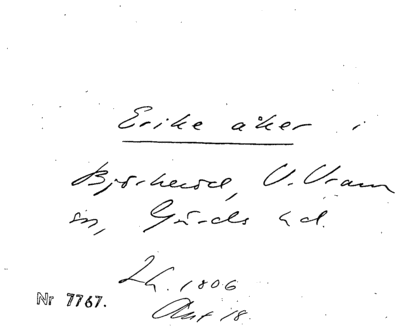 Eriks åker i
Björkeröd, V. Vram
sn, Gärds hd.
Lh. 1806
Akt 18.
Nr 7767.